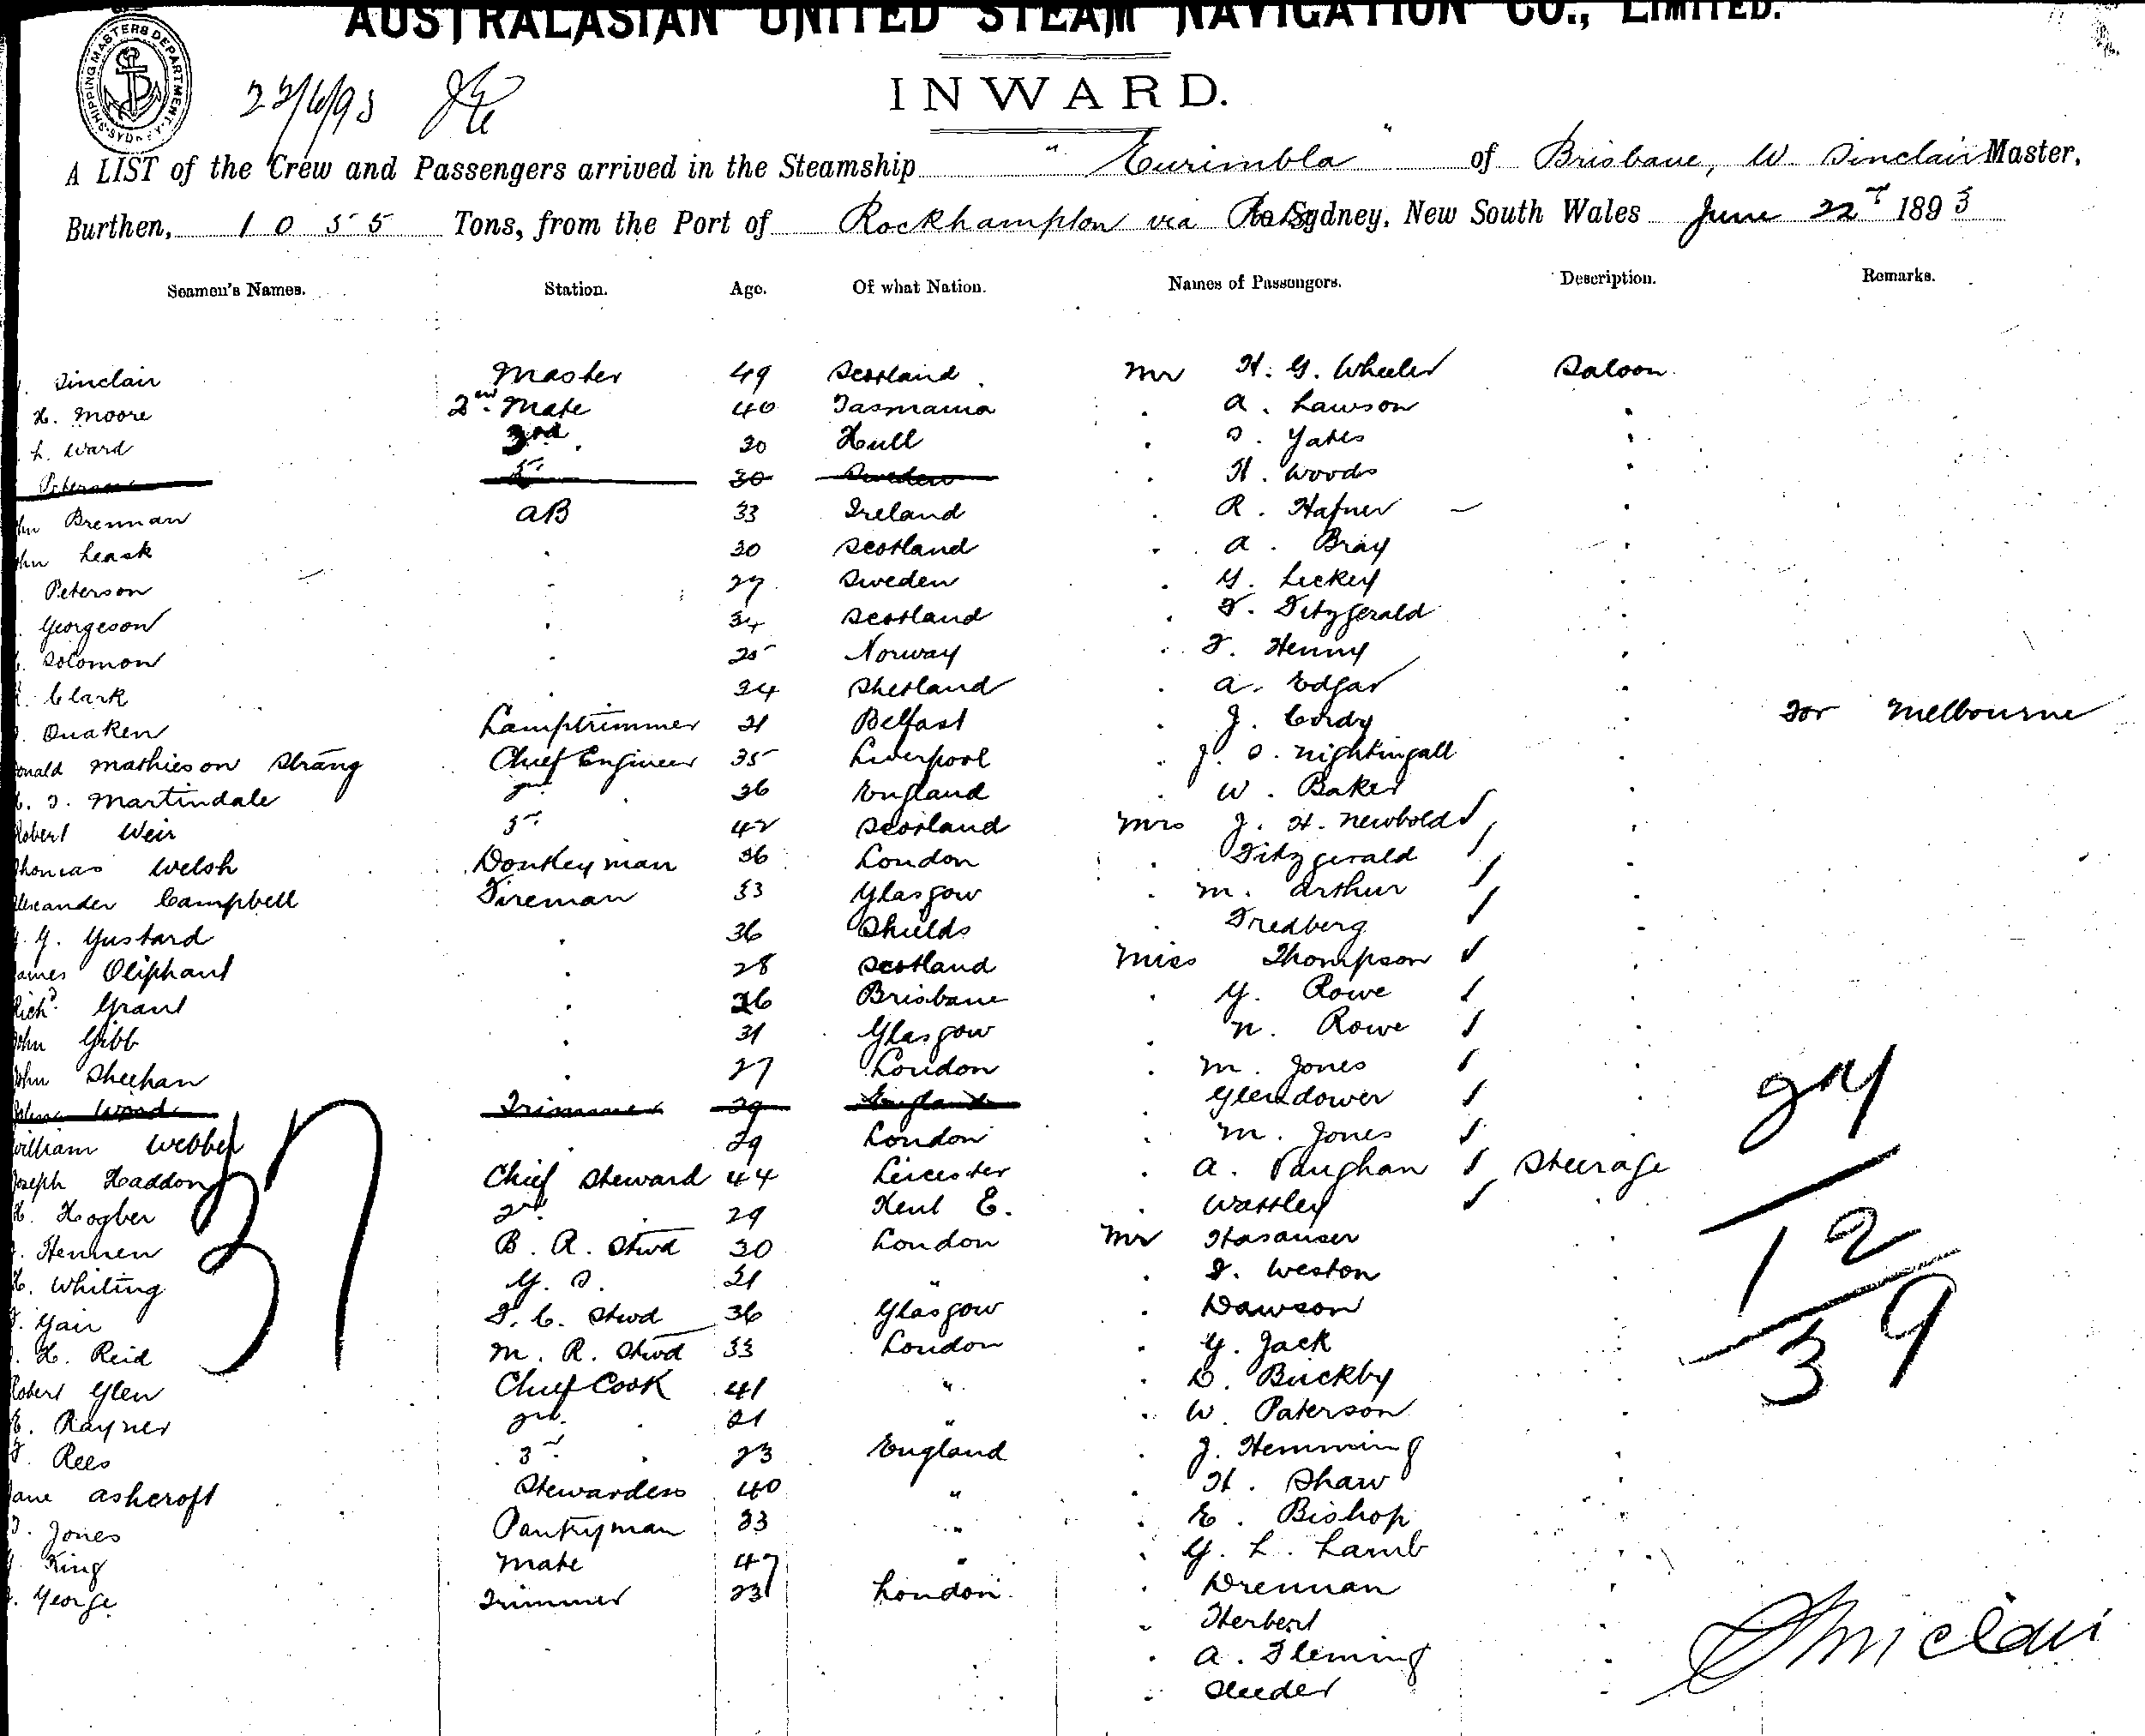 AUSTRALASIAN UNITED STEAM NAVIGATION CO., LIMITED.
SHIPPING MASTERS DEPARTMENT SYDNEY
INWARD.
22/6/93
A LIST of the Crew and Passengers arrived in the Steamship "Eurimbla" of Brisbane, W. Sinclair Master,
Burthen, 1055 Tons, from the Port of Rockhampton via to Sydney, New South Wales June 22nd 1893
Seamen's Names. Station. Age. Of what Nation. Names of Passengers. Description. Remarks.
Sinclair Master 49 Scotland Mr H. G. Wheeler Saloon
H. Moore 2nd Mate 40 Tasmania . A. Lawson .
L. Ward 3rd . 30 Hull . S. Yates .
Peterson 30 Sweden . H. Woods .
hn Brennan AB 33 Ireland . R. Hafner .
hn Leask . 30 Scotland . A. Bray .
Peterson . 27 Sweden . G. Leckey .
Georgeson . 34 Scotland . F. Fitzgerald .
Solomon . 25 Norway . F. Henny .
Clark . 24 Shetland . A. Edgar .
Quaken Lamptrimmer 21 Belfast . J. Cordy . For Melbourne
onald Mathieson Strang Chief Engineer 35 Liverpool . J. S. Nightingall
S. Martindale 2nd . 36 England . W. Baker .
Robert Weir 3rd 42 Scotland Mrs J. H. Newbold .
Thomas Welsh Donkeyman 36 London . Fitzgerald .
lexander Campbell Fireman 33 Glasgow . M. Arthur .
G. Gustard . 36 Shields Fredberg .
ames Oliphant . 28 Scotland Miss Thompson .
Richd. Grant . 26 Brisbane . G. Rowe .
John Gibb . 31 Glasgow . N. Rowe .
John Sheehan . 27 London . M. Jones .
Wood Trimmer 29 England . Glendower .
William Webber . 29 London . M. Jones .
Joseph Haddon Chief Steward 44 Leicester . A. Vaughan Steerage
H. Hogber 2nd . 29 Kent E. . Wattley
Hennen B. R. Stwd 30 London Mr Hasanser .
H. Whiting G. S. 21 " . F. Weston
Gair F. C. Stwd 36 Glasgow . Dawson
H. Reid M. R. Stwd 33 London . G. Jack
Robert Glen Chief Cook 41 " . D. Buckby
E. Rayner 2nd . 21 " . W. Paterson
Rees 3rd . 23 England . J. Hemming
ane Ashcroft Stewardess 40 " . H. Shaw
Jones Pantryman 33 " . E. Bishop
King Mate 47 " . G. L. Lamb
George Trimmer 23 London . Drennan
. Herbert
. A. Fleming
. Sleeder
37
12
39
Sinclair